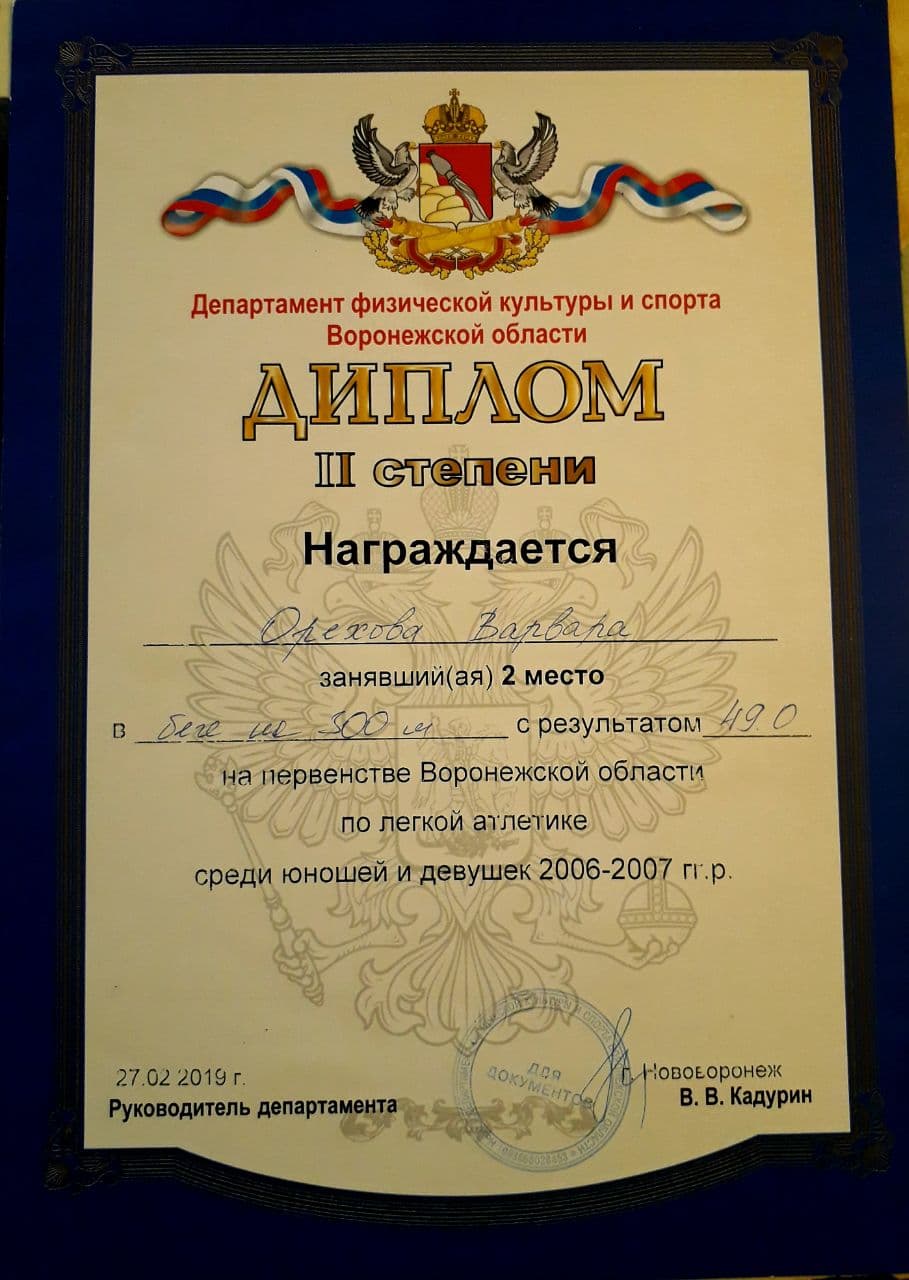 Департамент физической культуры и спорта
Воронежской области
ДИПЛОМ
II степени
Награждается
Орехова Варвара
занявший(ая) 2 место
в беге на 300 м с результатом 49.0
на первенстве Воронежской области
по легкой атлетике
среди юношей и девушек 2006-2007 гг.р.
27.02 2019 г.
г. Нововоронеж
Руководитель департамента
В. В. Кадурин
ДЛЯ
ДОКУМЕНТОВ